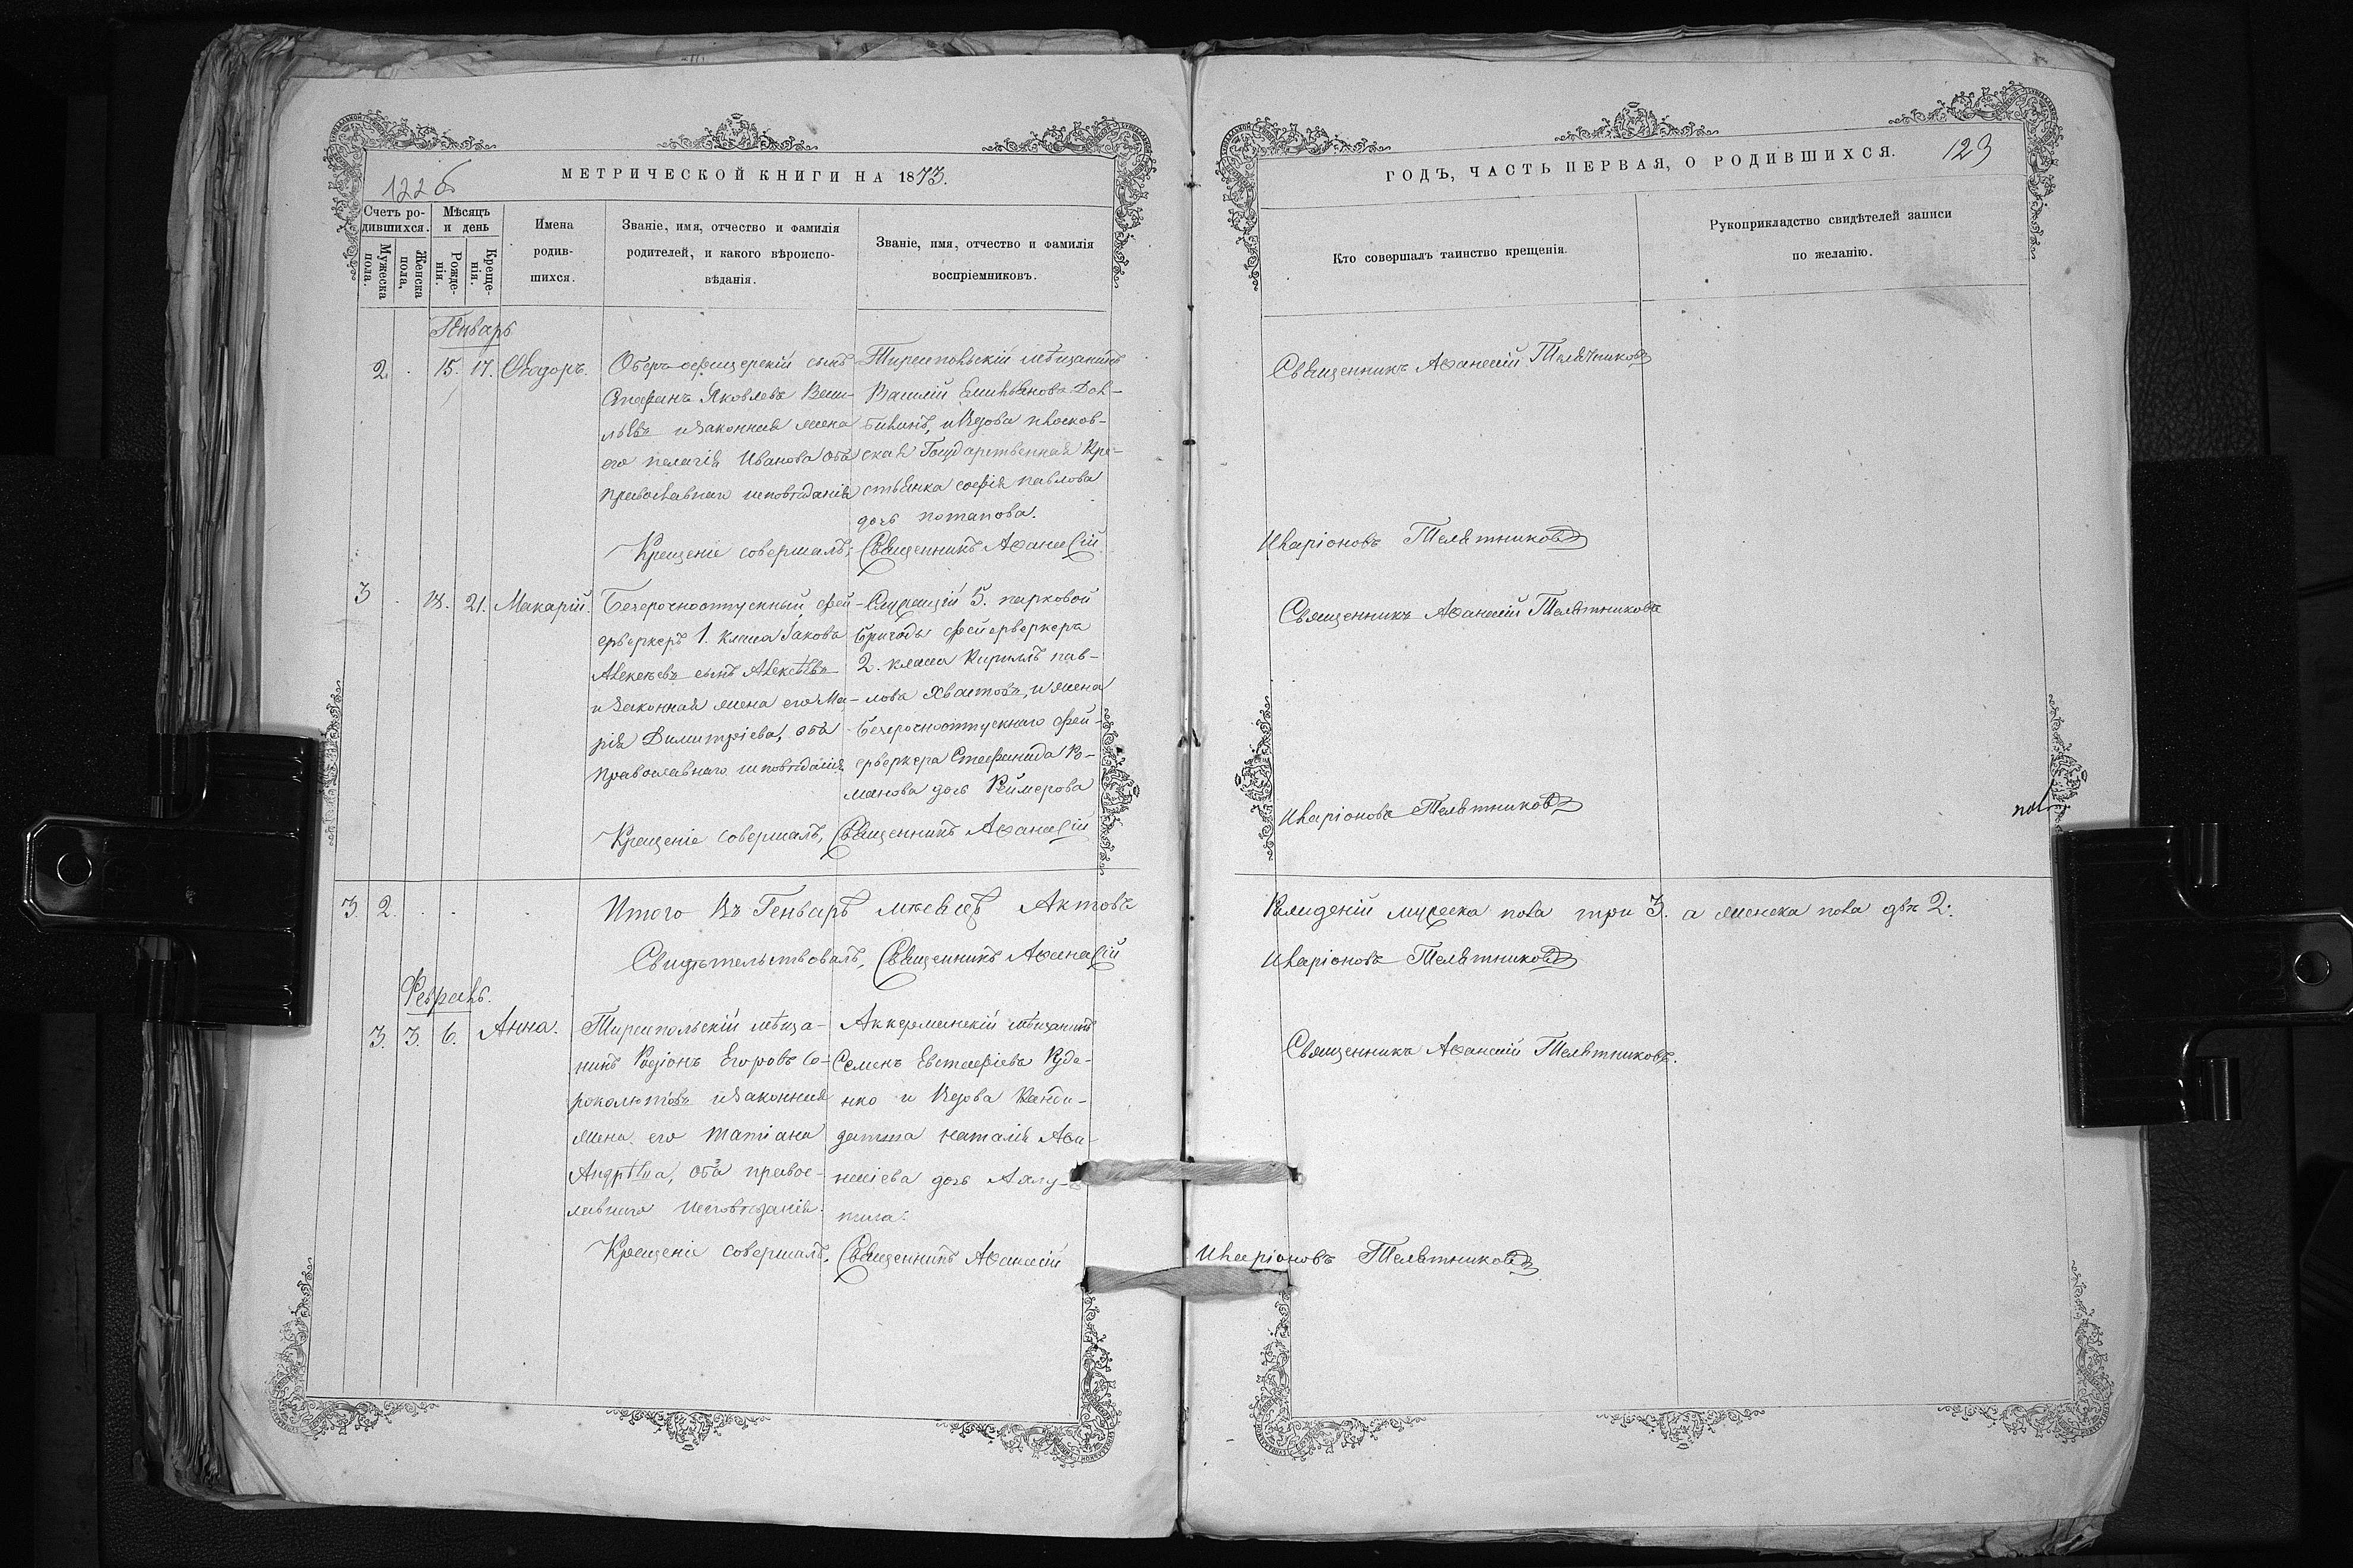 122 б
МЕТРИЧЕСКОЙ КНИГИ НА 1873.
Счетъ ро-
дившихся.
Мужеска
пола.
Женска
пола,
Мѣсяцъ
и день
Рожде-
нія.
Креще-
нія.
Имена
родив-
шихся.
Званіе, имя, отчество и фамилія
родителей, и какого вѣроиспо-
вѣданія.
Званіе, имя, отчество и фамилія
воспріемниковъ.
Генварь
2. 15. 17. Ѳеодоръ.
Оберъ-офицерскій сынъ
Стефанъ Яковлевъ
и законная жена
его пелагія Иванова оба
православнаго исповѣданія
Тираспольскій мѣщанинъ
Василій Емильяновъ Дол-
билинъ, и Вдова псков-
ская Государственная Кре-
стьянка софія павлова
дочь потапова.
Крещеніе совершалъ, Священникъ Аѳанасій
3 18. 21. Макарій.
Безсрочноотпускный фей-
ерверкеръ 1. класа Іаковъ
Алексѣевъ сынъ Алексѣевъ
и законная жена его Ма-
рія Димитріева, оба
православнаго исповѣданія
Служащій 5. парковой
бригады фейерверкеръ
2. класа Кириллъ пав-
ловъ Хвастовъ, и жена
безсрочноотпускнаго фей-
ерверкера Стефанида Ро-
манова дочь Реймерова
Крещеніе совершалъ, Священникъ Аѳанасій
3. 2.
Итого Въ Генварѣ мѣсяцѣ Актовъ
Свидѣтельствовалъ, Священникъ Аѳанасій
Февраль.
3. 3. 6. Анна.
Тираспольскій мѣща-
нинъ Родіонъ Егоровъ Со-
роколѣтовъ и законная
жена его Татіана
Андрѣева, оба право-
лавнаго Исповѣданія.
Аккерманскій мѣщанинъ
Семенъ Евстафіевъ Руде-
нко и Вдова Канди-
датша наталія Аѳа-
насіева дочь
Крещеніе совершалъ, Священникъ Аѳанасій
ГОДЪ, ЧАСТЬ ПЕРВАЯ, О РОДИВШИХСЯ. 123
Кто совершалъ таинство крещенія.
Рукоприкладство свидѣтелей записи
по желанію.
Священникъ Аѳанасій Телятниковъ
Иларіоновъ Телятниковъ
Священникъ Аѳанасій Телятниковъ
Иларіоновъ Телятниковъ
Рожденій мужеска пола три 3. а женска пола двѣ 2.
Иларіоновъ Телятниковъ
Священникъ Аѳанасій Телятниковъ.
Иларіоновъ Телятниковъ